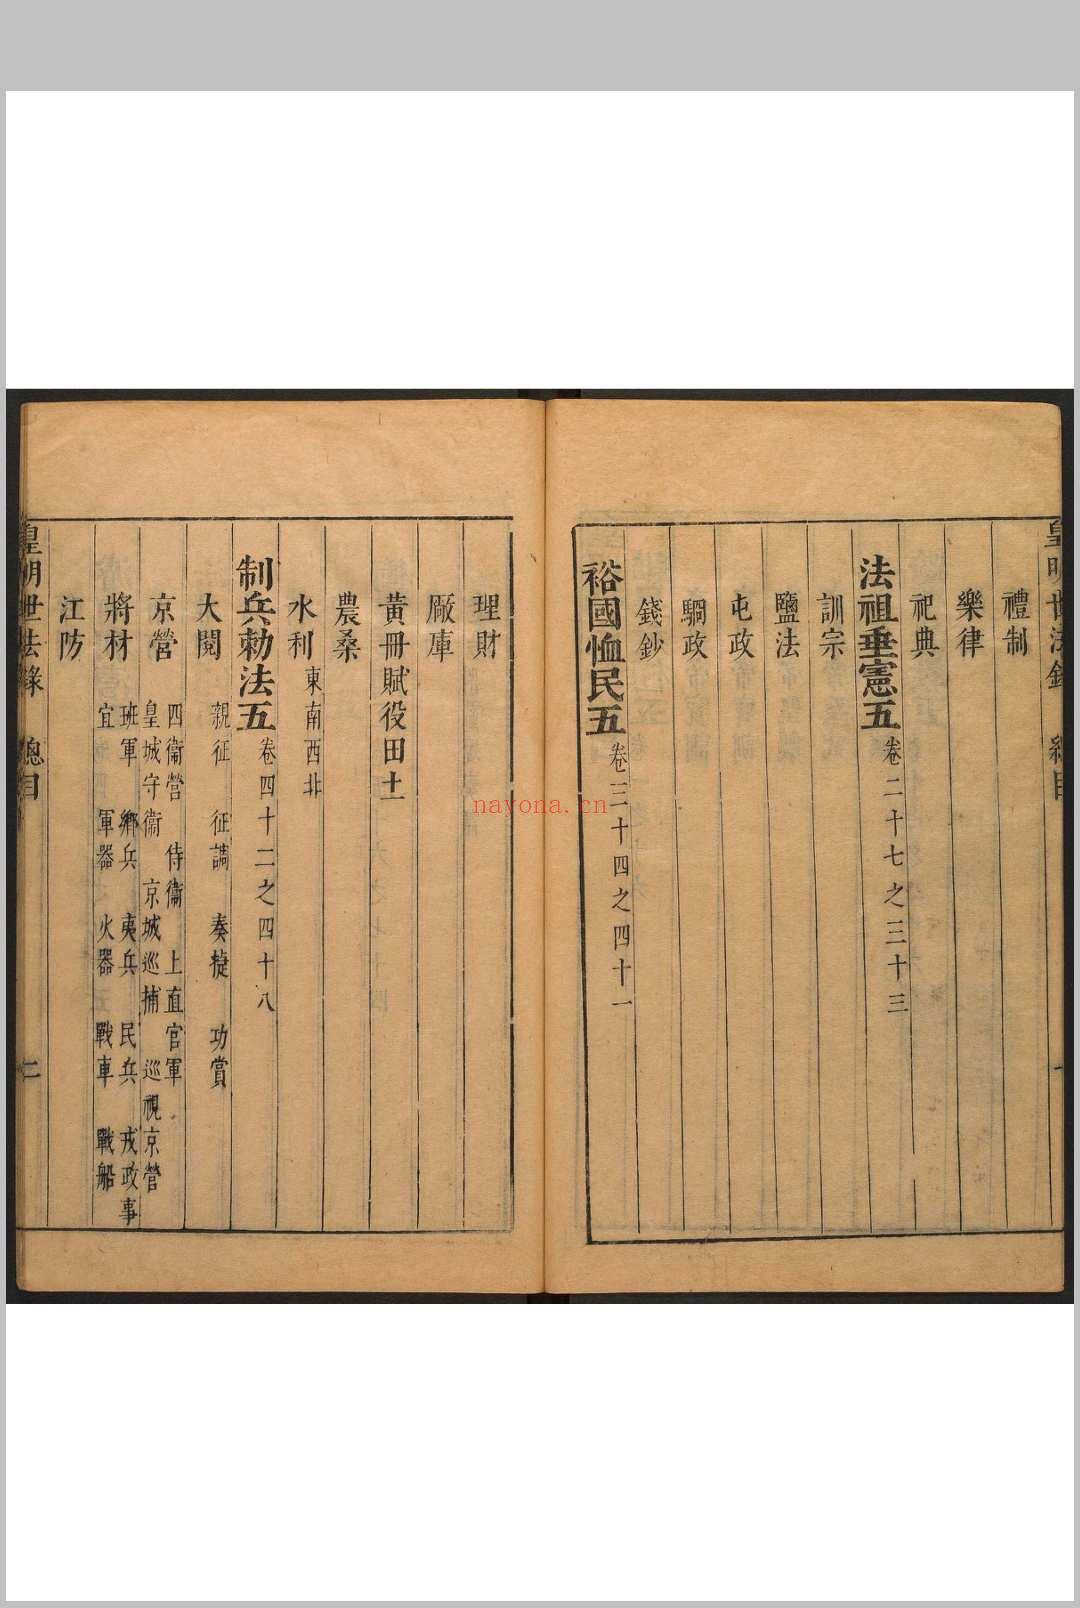 皇明世法錄 總目 一
禮制
樂律
祀典
法祖垂憲五 卷二十七之三十三
訓宗
鹽法
屯政
駉政
錢鈔
裕國恤民五 卷三十四之四十一
理財
廠庫
黃冊賦役田土
農桑
水利 東南西北
制兵勅法五 卷四十二之四十八
大閱 親征 征調 奏捷 功賞
京營 四衞營 侍衞 上直官軍
皇城守衞 京城巡捕 巡視京營
將材 班軍 鄉兵 夷兵 民兵 戎政事
宜 軍器 火器 戰車 戰船
江防
皇明世法錄 總目 二
nayona.cn